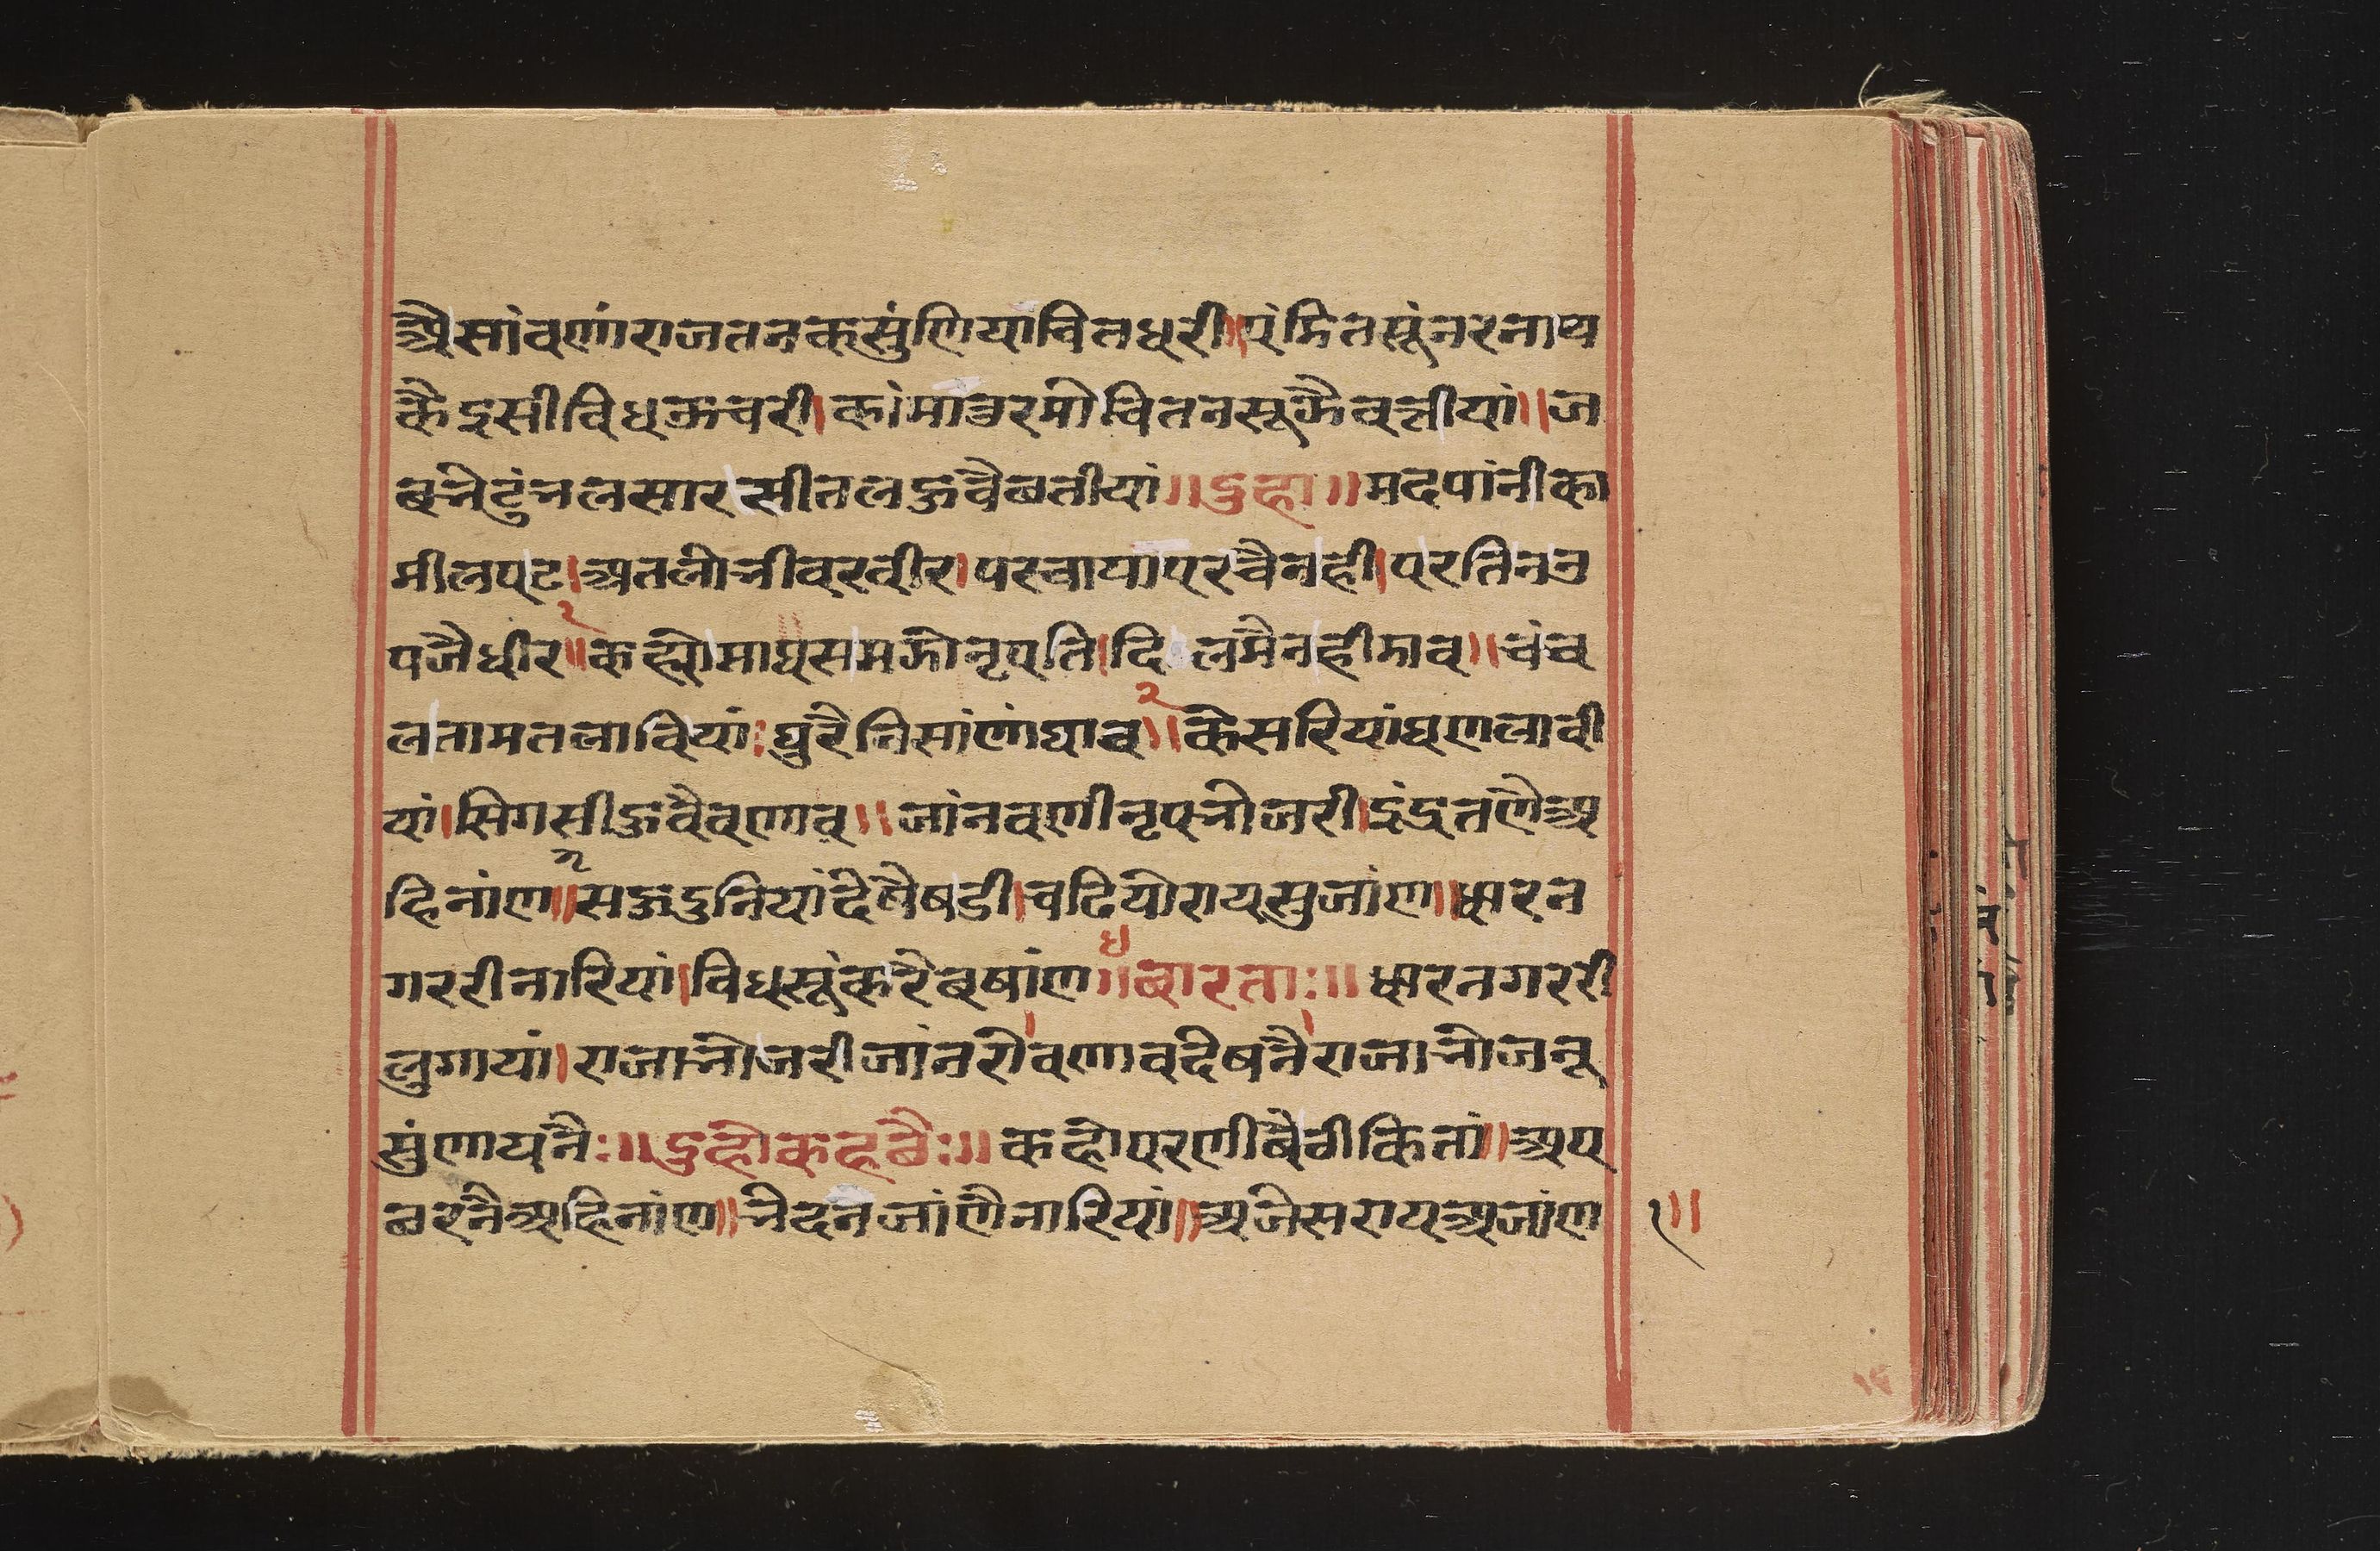 अैसांवणांराजतनकसुंणियांचितधरी।पंडितसूंनरनाथ
कैइसीविधऊचरी।कांमाउरमोचितनसूझैवत्तीयां॥ज
बभेटुंनलसारसीतलऊवैबतीयां॥डुहा॥मदपांनीका
मीलपट।अतलोभीवरवीर।पस्वायापरचैनही।परतिनउ
पजैधीर॥२कह्योमाघसमझोनृपति।दिलमैनहीडाव॥चंच
लतामतलावियां:घुरैनिसांणांघाव॥२केसरियांघणलावी
यां।सिगसीऊवैवणाव॥जांनवणीनृपभोजरी।इंद्रतणैअ
हिनांण॥३सऊदुनियांदेषैषडी।चढियोरायसुजांण॥धारन
गररीनारियां।विधसूंकरैबषांण॥४॥वारता:॥धारनगररी
लुगायां।राजाभोजरीजांनरोवणावदेषनै।राजाभोजनू
सुंणायनै:॥दुहोकहवै:॥कहोपरणीबैगीकितां॥अप
बरनैअहिनांण॥भेदनजांणैनारियां॥अजेसरायअजांण १॥